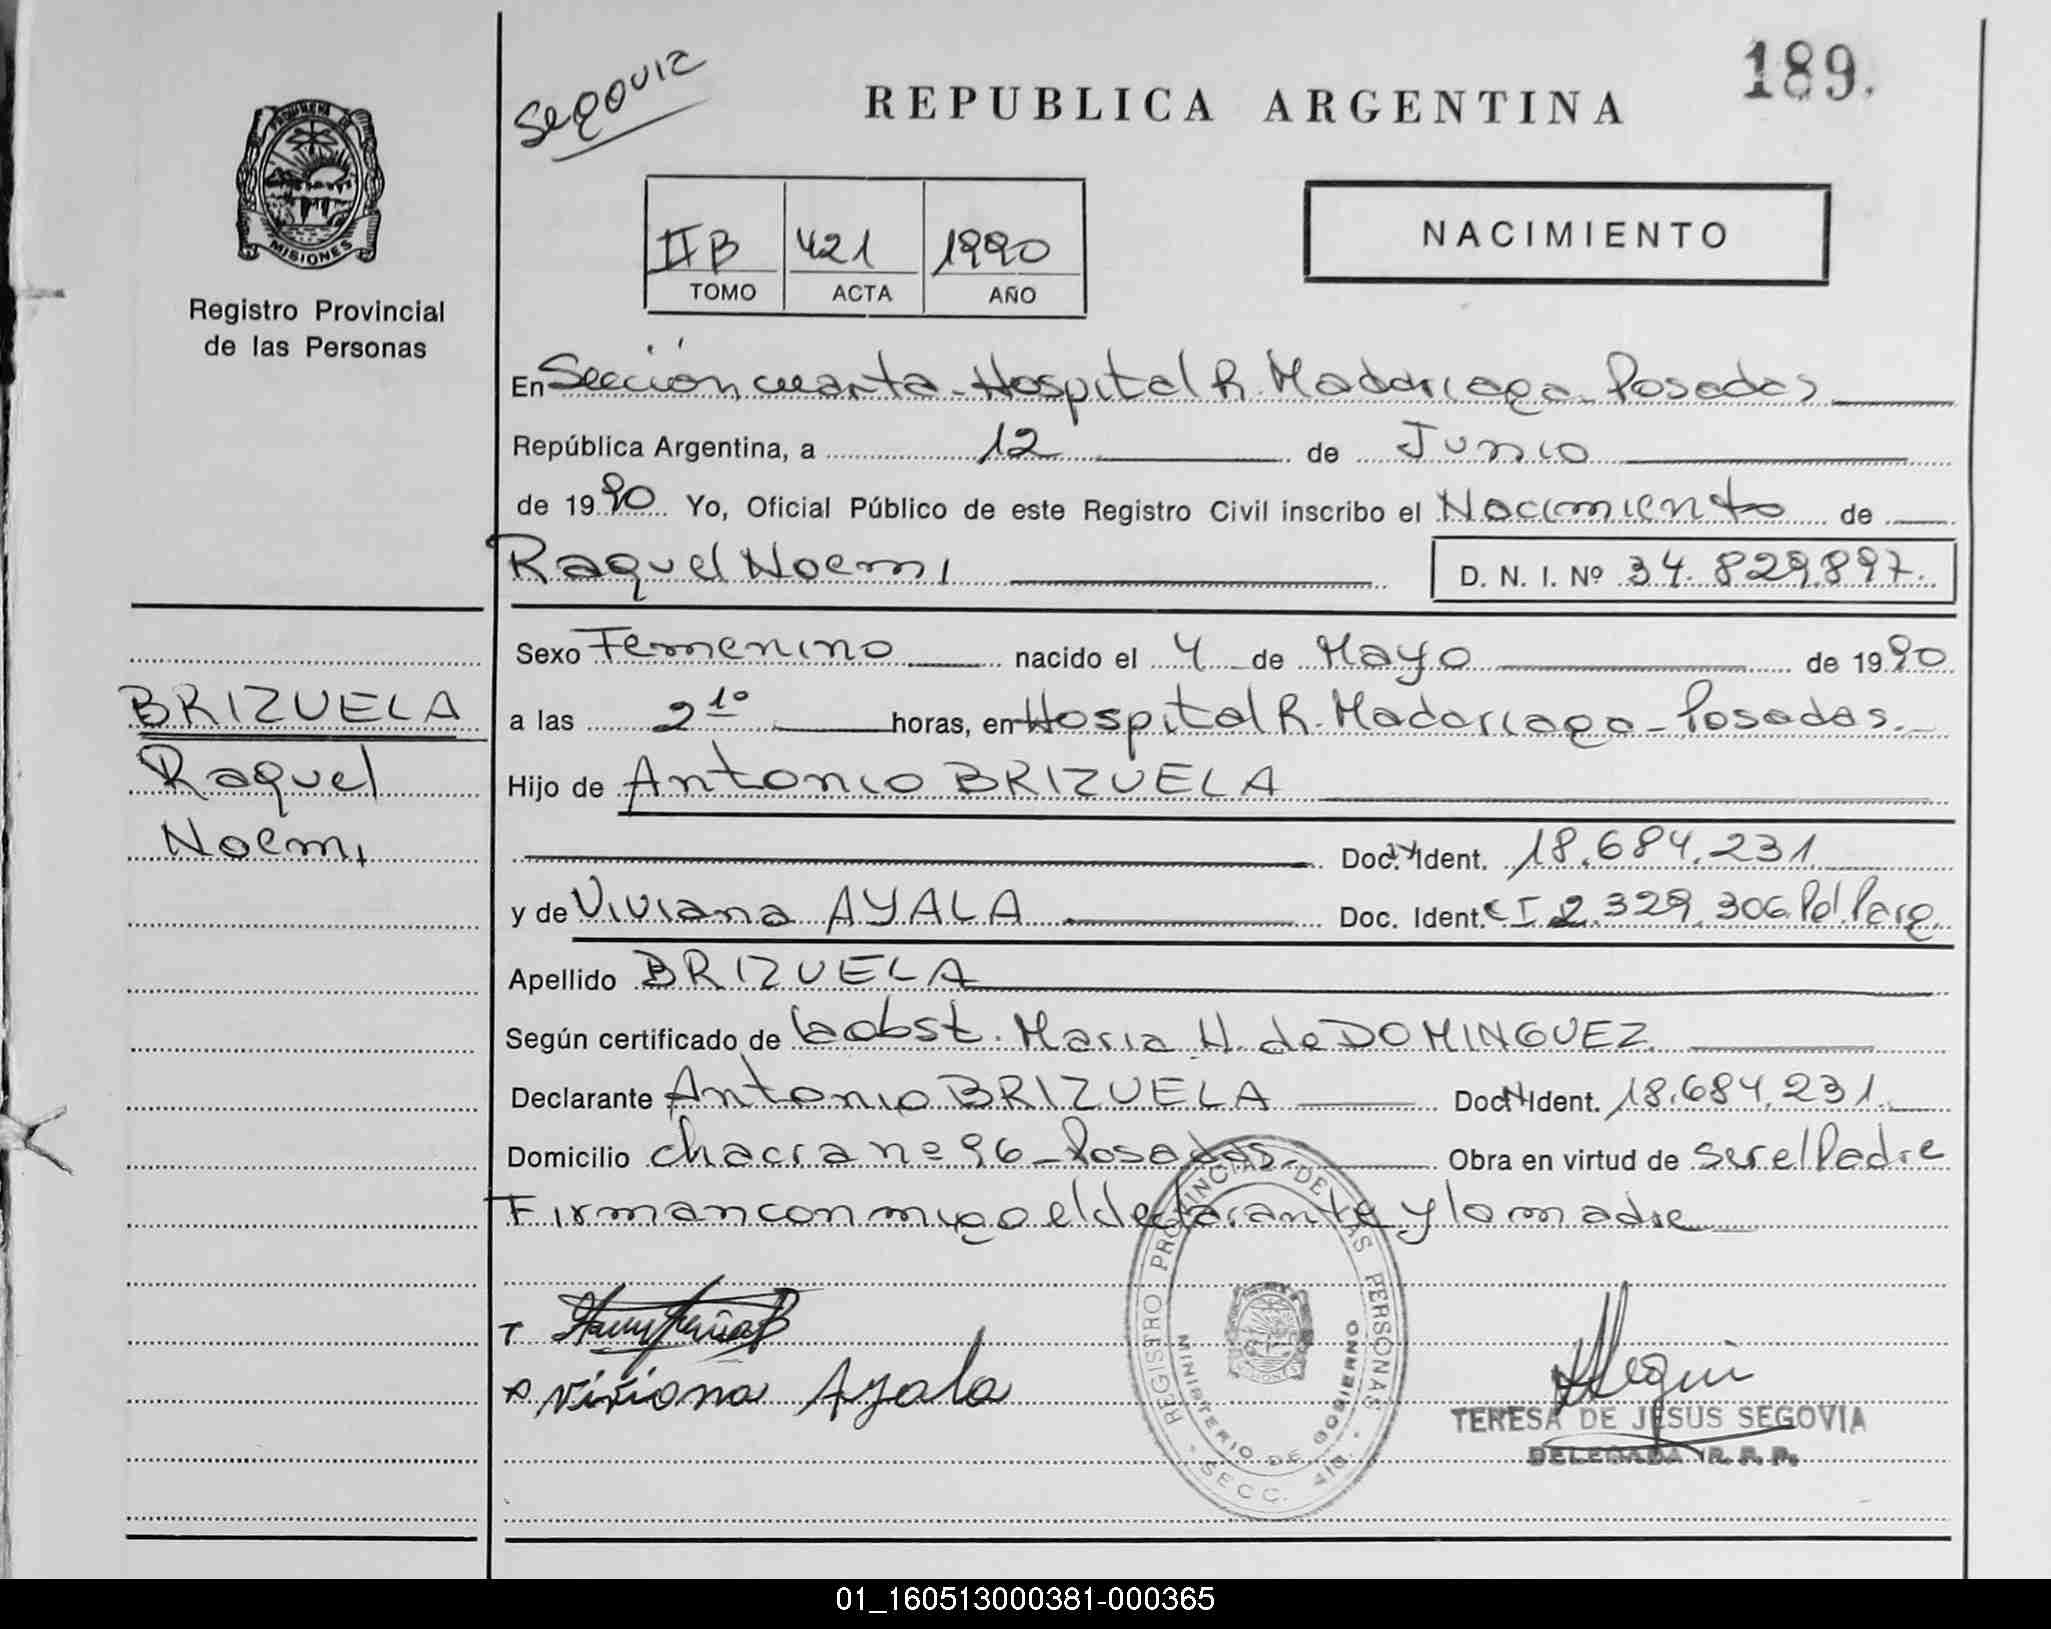 189.
Segovia
REPUBLICA ARGENTINA
PROVINCIA DE
MISIONES
Registro Provincial
de las Personas
II B 421 1990
TOMO ACTA AÑO
NACIMIENTO
En Sección cuarta - Hospital R. Madariaga - Posadas
República Argentina, a 12 de Junio
de 1990 Yo, Oficial Público de este Registro Civil inscribo el Nacimiento de
Raquel Noemi D. N. I. Nº 34.829.897.
Sexo Femenino nacido el 4 de Mayo de 1990
a las 2 10 horas, en Hospital R. Madariaga - Posadas.
Hijo de Antonio BRIZUELA
Doc. Ident. 18.684.231
y de Viviana AYALA Doc. Ident. CI 2.329.306 Pol. Parg.
Apellido BRIZUELA
Según certificado de la obst. Maria H. de DOMINGUEZ
Declarante Antonio BRIZUELA Doc. Ident. 18.684.231.
Domicilio chacra nº 96 - Posadas - Obra en virtud de ser el Padre
Firman conmigo el declarante y la madre
BRIZUELA
Raquel
Noemi
Viviana Ayala
REGISTRO PROVINCIAL DE LAS PERSONAS
MINISTERIO DE GOBIERNO
- SECC. 4ta. -
TERESA DE JESUS SEGOVIA
DELEGADA R. P. P.
01_160513000381-000365